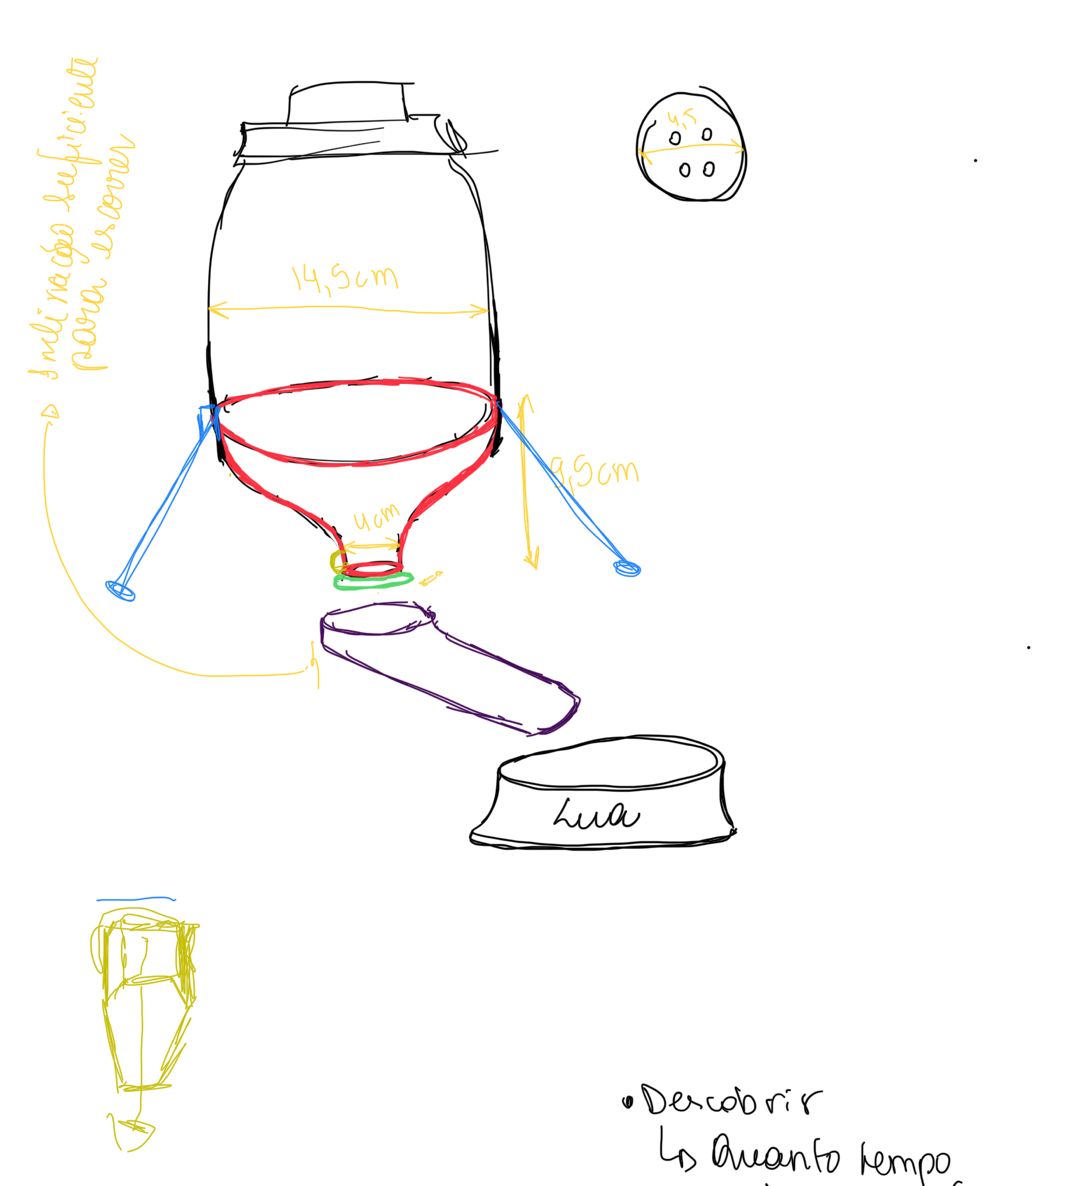 Inclinação suficiente
para escorrer
4,5
14,5cm
9,5cm
4cm
Lua
• Descobrir
↳ Quanto tempo